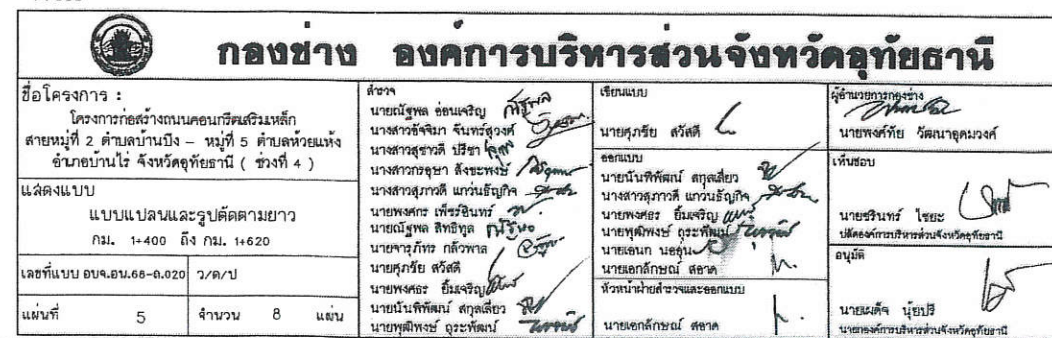 กองช่าง องค์การบริหารส่วนจังหวัดอุทัยธานี
ชื่อโครงการ :
โครงการก่อสร้างถนนคอนกรีตเสริมเหล็ก
สายหมู่ที่ 2 ตำบลบ้านบึง – หมู่ที่ 5 ตำบลห้วยแห้ง
อำเภอบ้านไร่ จังหวัดอุทัยธานี ( ช่วงที่ 4 )
แสดงแบบ
แบบแปลนและรูปตัดตามยาว
กม. 1+400 ถึง กม. 1+620
เลขที่แบบ อบจ.อน.68-ถ.020 ว/ด/ป
แผ่นที่ 5 จำนวน 8 แผ่น
สำรวจ
นายณัฐพล อ่อนเจริญ
นางสาวอัจจิมา จันทร์สุวงศ์
นางสาวสุชาวดี ปรีชา
นางสาวกรอุษา สังขะพงษ์
นางสาวสุภาวดี แกวนธัญกิจ
นายพงศกร เพ็ชรอินทร์
นายณัฐพล สิทธิทูล
นายจารุภัทร กลัวพาล
นายศุภชัย สวัสดี
นายพงศธร ยิ้มเจริญ
นายนันทิพัฒน์ สกุลเสี่ยว
นายพุฒิพงษ์ ถุระพัฒน์
เขียนแบบ
นายศุภชัย สวัสดี
ออกแบบ
นายนันทิพัฒน์ สกุลเสี่ยว
นางสาวสุภาวดี แกวนธัญกิจ
นายพงศธร ยิ้มเจริญ
นายพุฒิพงษ์ ถุระพัฒน์
นายเอนก
นายเอกลักษณ์ สอาด
หัวหน้าฝ่ายสำรวจและออกแบบ
นายเอกลักษณ์ สอาด
ผู้อำนวยการกองช่าง
นายพงศ์ทัย วัฒนาอุดมวงศ์
เห็นชอบ
นายชรินทร์ ไชยะ
ปลัดองค์การบริหารส่วนจังหวัดอุทัยธานี
อนุมัติ
นายเผด็จ นุ้ยปรี
นายกองค์การบริหารส่วนจังหวัดอุทัยธานี